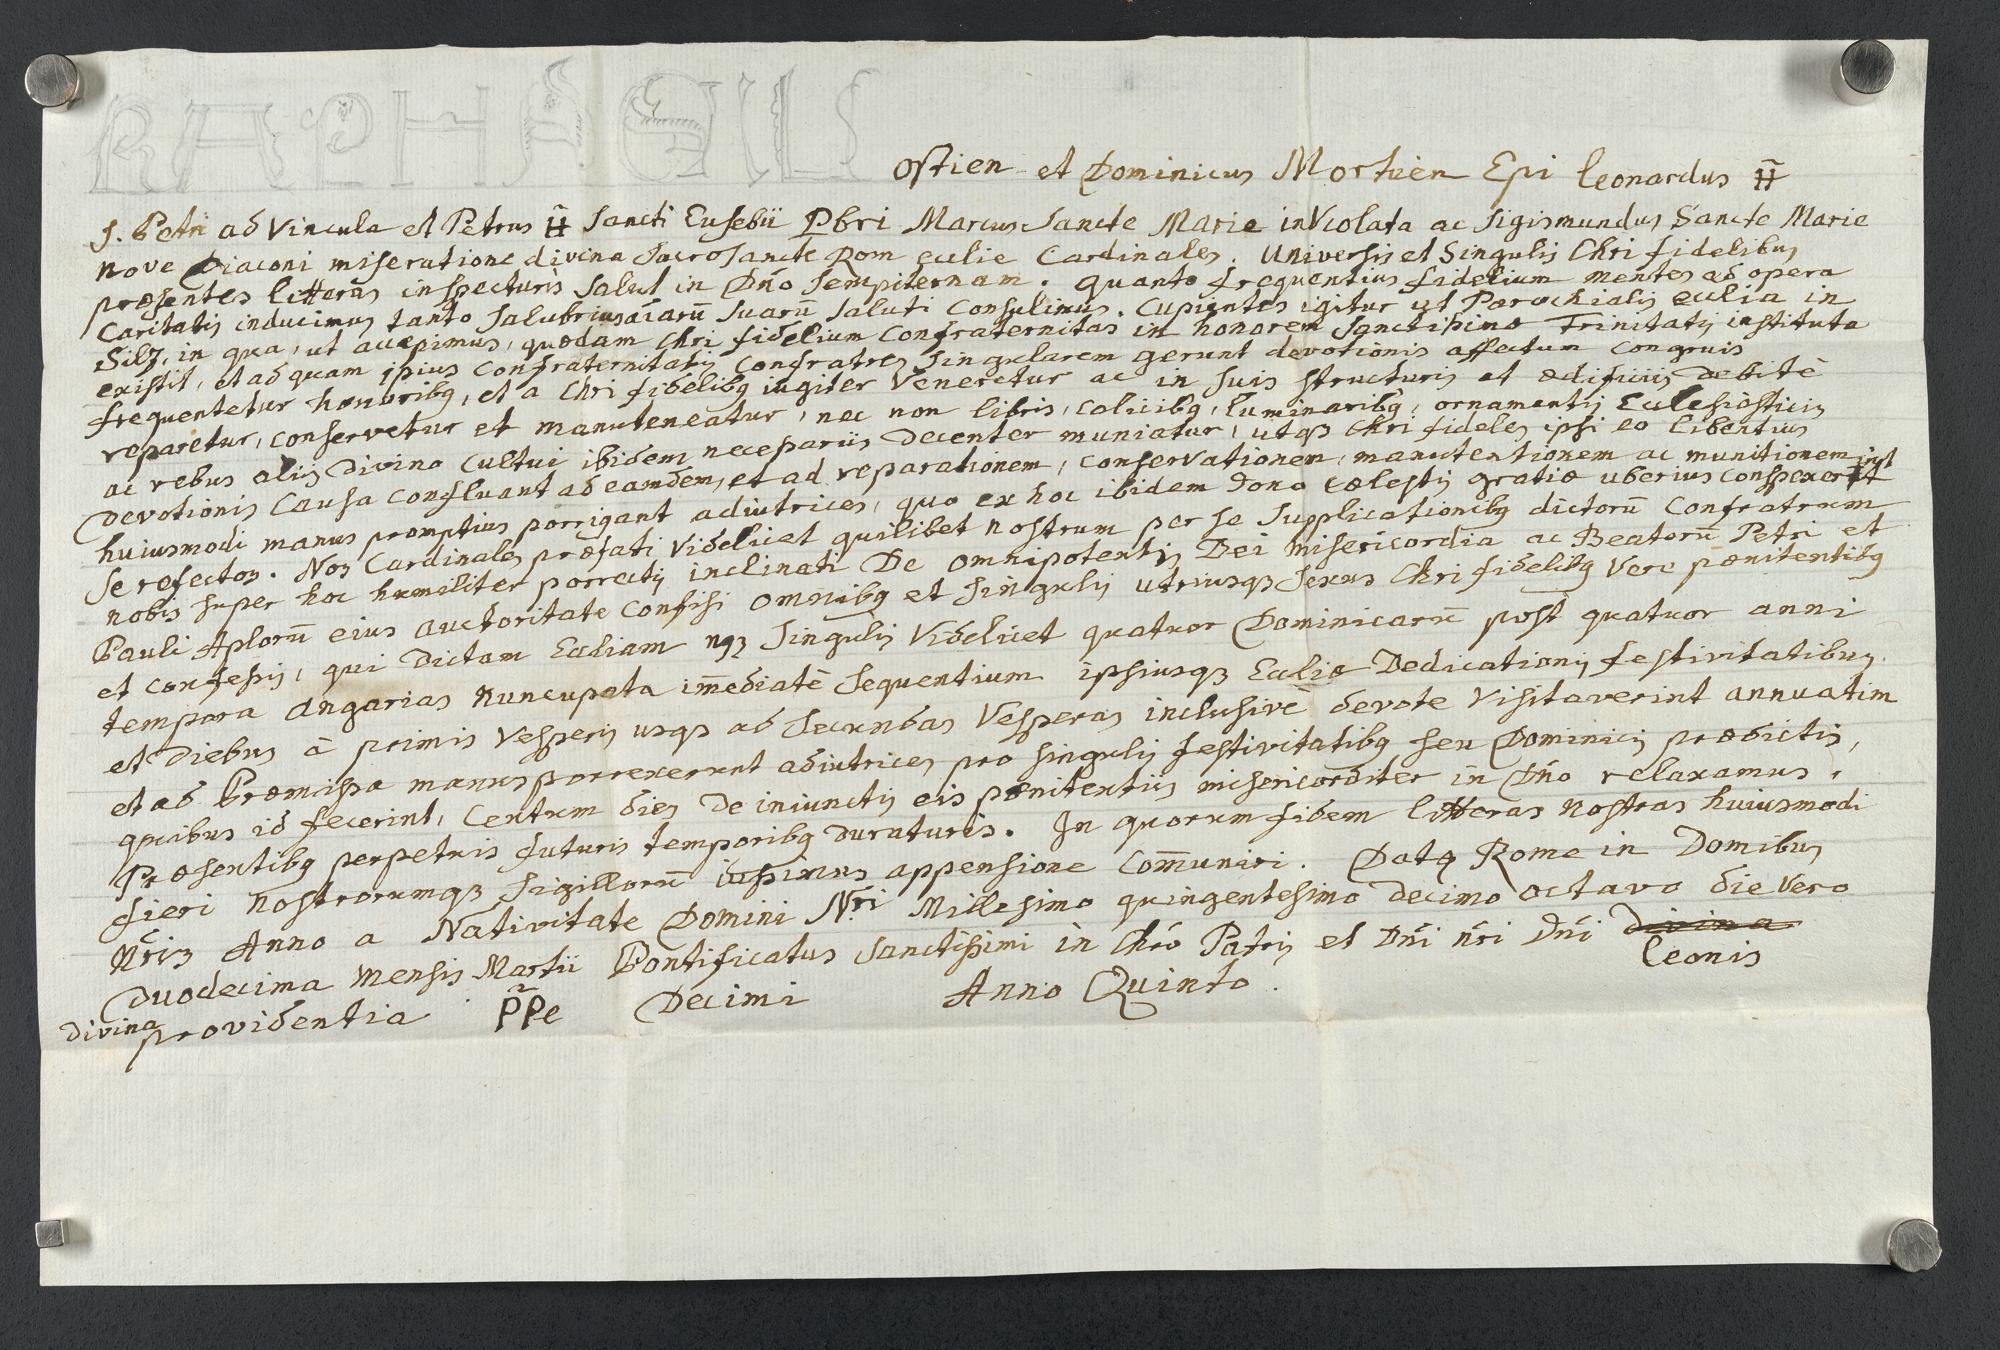 RAPHAEILS
Ostien et Dominicus Mortuen Epi Leonardus H̃
S. Petri ad Vincula et Petrus H̃ Sancti Eusebii Pbri Marcus Sancte Marie inViolata ac Sigismundus Sancte Marie
nove Diaconi miseratione divina Sacro Sancte Rom ecclie Cardinales. Universis et Singulis Chri fidelibus
præsentes litteras inspecturis Salut in Dño Sempiternam. Quanto frequentius fidelium mentes ad opera
Caritatis inducimus tanto Salubrius aĩarũ Suarũ Saluti Consulimus. Cupientes igitur ut Parochialis ecclia in
Silz, in qua, ut accepimus, quædam Chri fidelium Confraternitas in honorem Sanctissimæ Trinitatis instituta
existit, et ad quam ipsius Confraternitatis Confratres Singularem gerunt devotionis affectum Congruis
frequentetur honoribq, et a Chri fidelibq iugiter Veneretur ac in Suis structuris et ædificiis Debitè
reparetur, conservetur et manuteneatur, nec non libris, calicibq, luminaribq, ornamentis Ecclesiasticis
ac rebus aliis Divino Cultui ibidem necessariis Decenter muniatur, utqꝫ Chri fideles ipsi eo libentius
Devotionis Causa Confluant ad eamdem, et ad reparationem, conservationem, manutentionem ac munitionem
huiusmodi manus promptius porrigant adiutrices, quo ex hoc ibidem Dono cœlestis gratiæ uberius conspexerint
Se refectos. Nos Cardinales præfati Videlicet quilibet nostrum per se Supplicationibq dictorũ Confratrum
nobis super hoc humiliter porrectis inclinati De omnipotentis Dei misericordia ac Beatorũ Petri et
Pauli Aplorũ eius auctoritate Confisi omnibq et Singulis utriusqꝫ Sexus Chri fidelibq Vere pœnitentibq
et confessis, qui Dictam Eccliam nqꝫ Singulis Videlicet quatuor Dominicarũ post quatuor anni
tempora Angarias nuncupata im̃ediatè Sequentium ipsiusqꝫ Eccliæ Dedicationis festivitatibus
et Diebus à primis Vesperis usqꝫ ad Secundas Vesperas inclusivè devote Visitaverint annuatim
et ad Præmissa manus porrexerunt adiutrices pro singulis festivitatibq seu Dominicis prædictis,
quibus id fecerint, Centum dies De iniunctis eis pœnitentiis misericorditer in Dño relaxamus,
Præsentibq perpetuis futuris temporibq Duraturis. In quorum fidem litteras Nostras huiusmodi
fieri Nostrorumqꝫ Sigillorũ iussimus appensione Com̃uniri. Datq Rome in Domibus
Nr̃is Anno a Nativitate Domini Nr̃i Millesimo quingentesimo Decimo octavo die Vero
Duodecima mensis Martii Pontificatus Sanctissimi in Chrõ Patris et Dñi nr̃i Dñi divina
Leonis
divina providentia P̃Pe Decimi Anno Quinto.